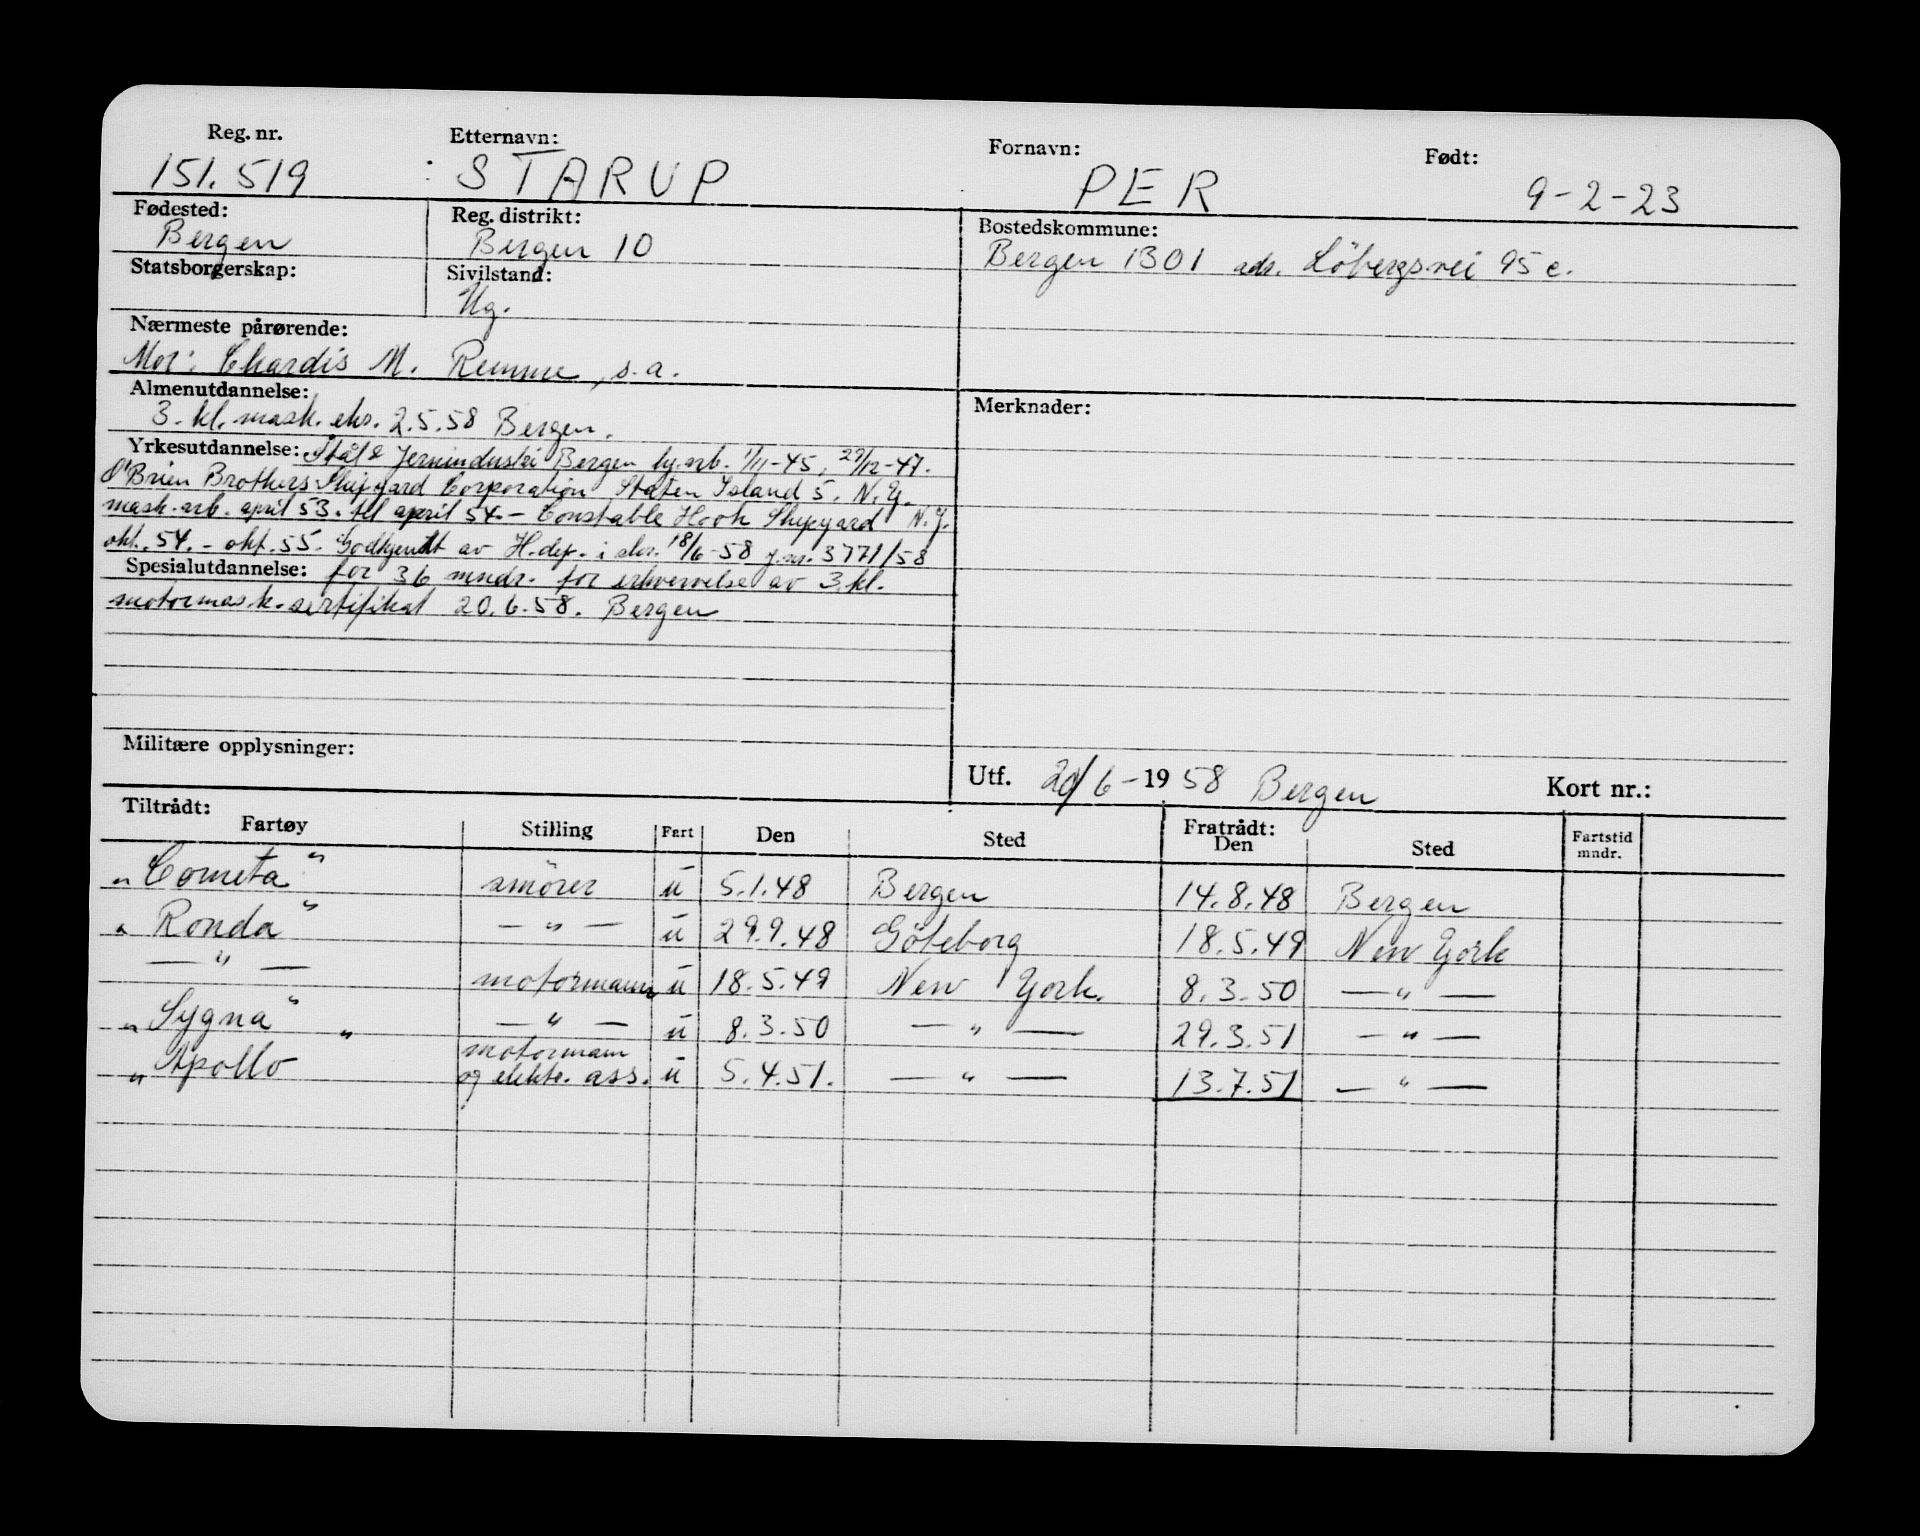 Reg. nr. Etternavn: Fornavn: Født:
151.519 : STARUP PER 9-2-23
Fødested: Reg. distrikt: Bostedskommune:
Bergen Bergen 10 Bergen 1301 adr. Löbergsvei 95 c.
Statsborgerskap: Sivilstand:
Ug.
Nærmeste pårørende:
Mor: Chardis M. Remme, s.a.
Almenutdannelse: Merknader:
3. kl. mask. eks. 2.5.58 Bergen.
Yrkesutdannelse: Stål & Jernindustri Bergen hj.arb. 1/11-45, 27/12-47.
O'Brien Brothers Shipyard Corporation Staten Island 5. N.Y.
mask. arb. april 53. til april 54. - Constable Hook Shipyard N.J.
okt. 54. - okt. 55. Godkjendt av H.dep. i skr. 18/6-58 j.nr. 3771/58
Spesialutdannelse: for 36 mndr. for erhvervelse av 3. kl.
motormask. sertifikat 20.6.58. Bergen
Militære opplysninger:
Utf. 20/6-1958 Bergen Kort nr.:
Tiltrådt: Fratrådt:
Fartøy Stilling Fart Den Sted Den Sted Fartstid mndr.
"Cometa" smörer u 5.1.48 Bergen 14.8.48 Bergen
"Ronda" — " — u 29.9.48 Göteborg 18.5.49 New York
— " — motormann u 18.5.49 New York. 8.3.50 — " —
"Sygna" — " — u 8.3.50 — " — 29.3.51 — " —
"Apollo" motormann
og elektr. ass. u 5.4.51. — " — 13.7.51 — " —